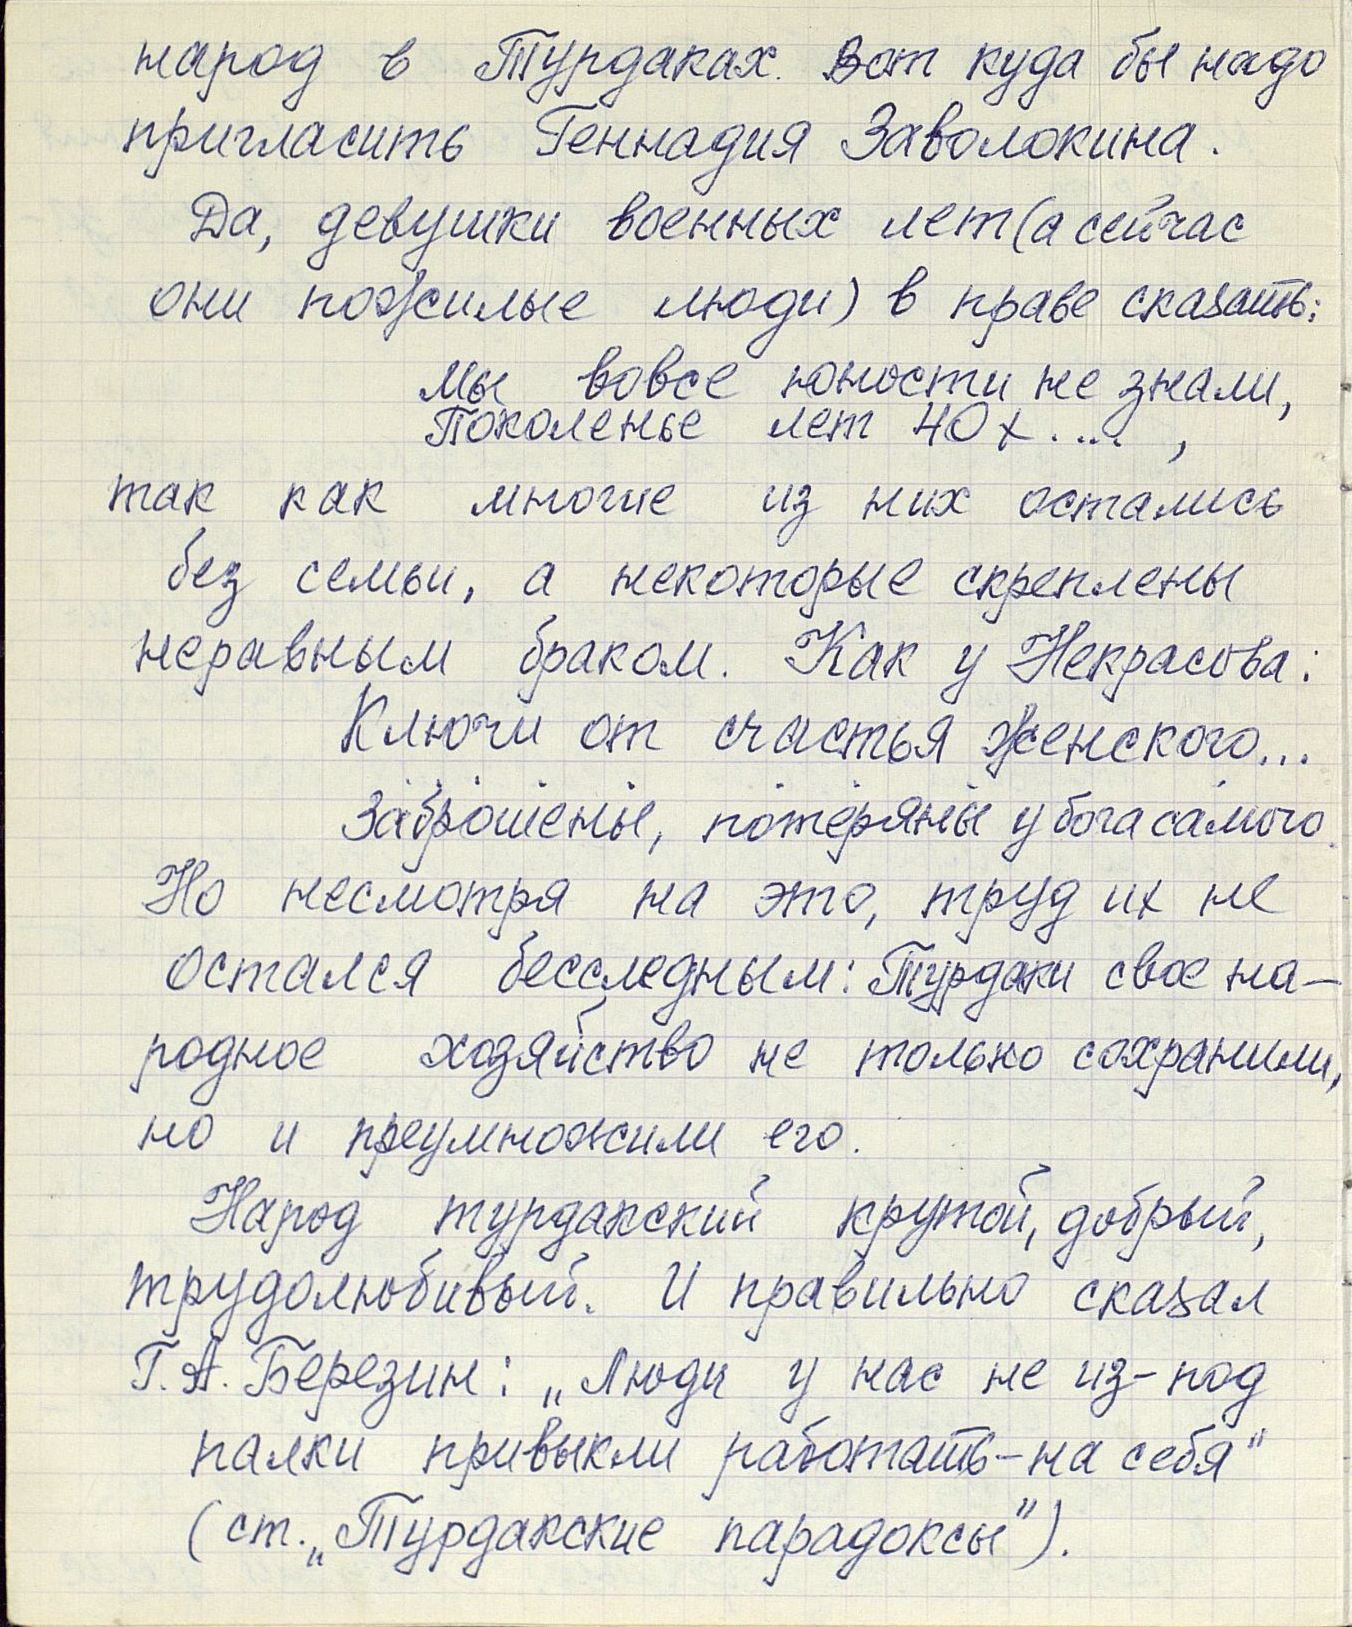 народ в Турдаках. Вот куда бы надо
пригласить Геннадия Заволокина.
Да, девушки военных лет (а сейчас
они пожилые люди) в праве сказать:
Мы вовсе юности не знали,
Поколенье лет 40х.... ,
так как многие из них остались
без семьи, а некоторые скреплены
неравным браком. Как у Некрасова:
Ключи от счастья женского...
Заброшены, потеряны у бога самого.
Но несмотря на это, труд их не
остался бесследным: Турдаки свое на-
родное хозяйство не только сохранили,
но и преумножили его.
Народ турдакский крутой, добрый,
трудолюбивый. И правильно сказал
Г.А. Березин: „Люди у нас не из-под
палки привыкли работать – на себя"
(ст. „Турдакские парадоксы").